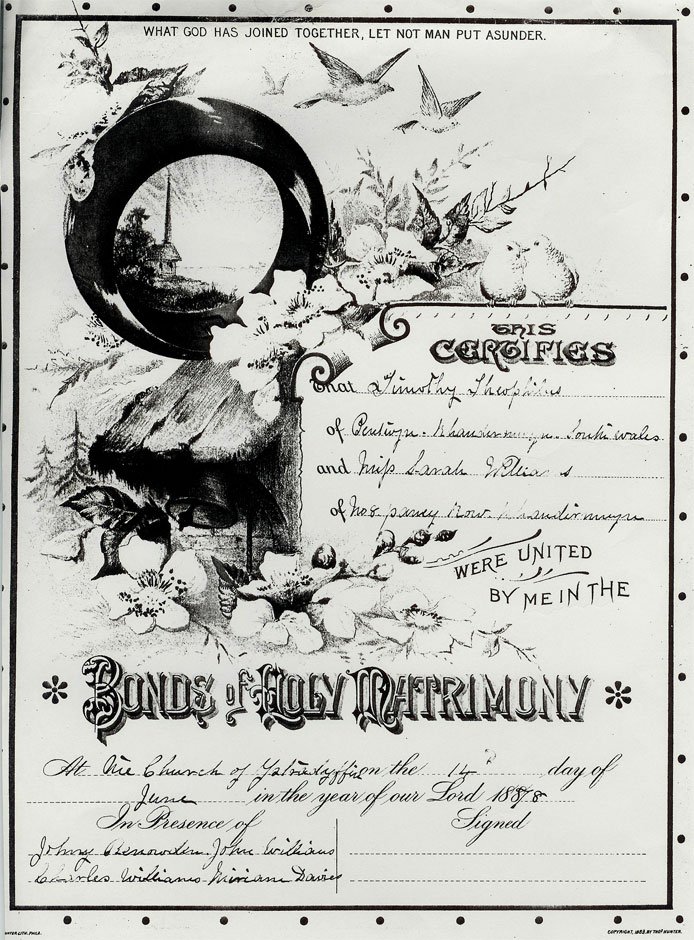 WHAT GOD HAS JOINED TOGETHER, LET NOT MAN PUT ASUNDER.
THIS
CERTIFIES
That Timothy Theophilus
of South Wales
and Miss Sarah Williams
of No 8 Row
WERE UNITED
BY ME IN THE
* BONDS of HOLY MATRIMONY *
At the Church of on the 14th day of
June in the year of our Lord 1878
In Presence of Signed
John Williams
Charles Williams Miriam Davies
HUNTER LITH. PHILA.
COPYRIGHT, 1889, BY THOS HUNTER.